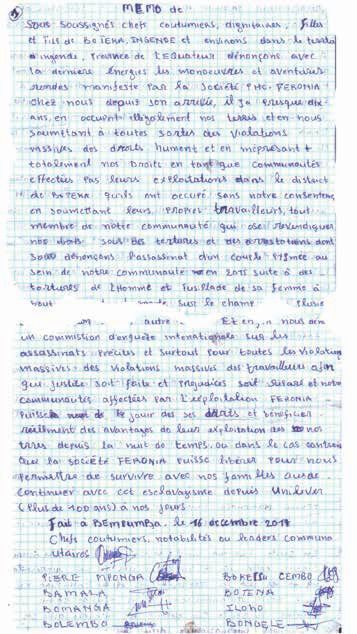 MEMO de
Nous soussignés chefs coutumiers, dignitaires, filles
et fils de BOTEKA, INGENDE et environs dans le territ
d'ingende, Province de l'EQuateur dénonçons avec
la dernière énergies les manoeuvres et aventures
manifeste Par la Société PHC-FERONIA
Chez nous depuis son arrivée, il ya presque dix
ans, en occupant illegalement nos terres et en nous
soumettant à toutes sortes des Violations
massives des droits humens et en méprisant
totalement nos Droits en tant que communautés
affectées Pas leurs exploitations dans le district
de BOTEKA quils ont occupé sans notre consentemen
en soumettant leurs propres travailleurs, tout
membre de notre communauté qui ose revendiquer
nos droits sous des tortures et des arrestations dont
nous dénonçons l'assassinat d'un couple
sein de notre communauté en 2015 suite à des
tortures de l'Homme et fusillade de sa femme à
bout sur le champ
autre Et en, n nous
un commission d'enquête internationale sur les
assassinats Précités et surtout Pour toutes les Violations
massives des Violations massives des travailleurs afin
que justice soit faite et Prejudices soit et notre
communautés affectées Par l'exploitation FERONIA
Puisse le jour des ses droits et bénéficier
réellement des avantages de leur exploitation des nos
terres depuis la nuit de temps. ou dans le cas contraire
que la société FERONIA Puisse libérer Pour nous
Permettre de survivre avec nos familles au de
Continuer avec cet esclavagysme depuis Unilever
(Plus de 100 ans) à nos jours
Fait à BEMPUMBA. le 16 decembre 2017
Chefs coutumiers, notabilités ou leaders communa
utaires
PIERE MPONGA BOKETSU CEMBO
BAMALA BOTENA
BOMANGA ILOKO
BOLEMBO BONDELE